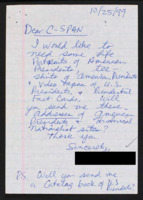 10/25/99
Dear C-SPAN
I would like to
need some
Portraits of American
Presidents tee-
shirts of American Presidents
& Video tapes of U.S.
Presidents & Presidential
Fact Cards. Will
you send me these
Addresses of American
Presidents & historical
sites?
Thank you
Sincerely,
P.S. Will you send me
a Catalog book of